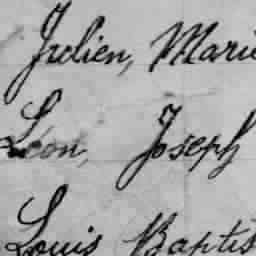 Julien, Marie
Léon, Joseph
Louis Baptis